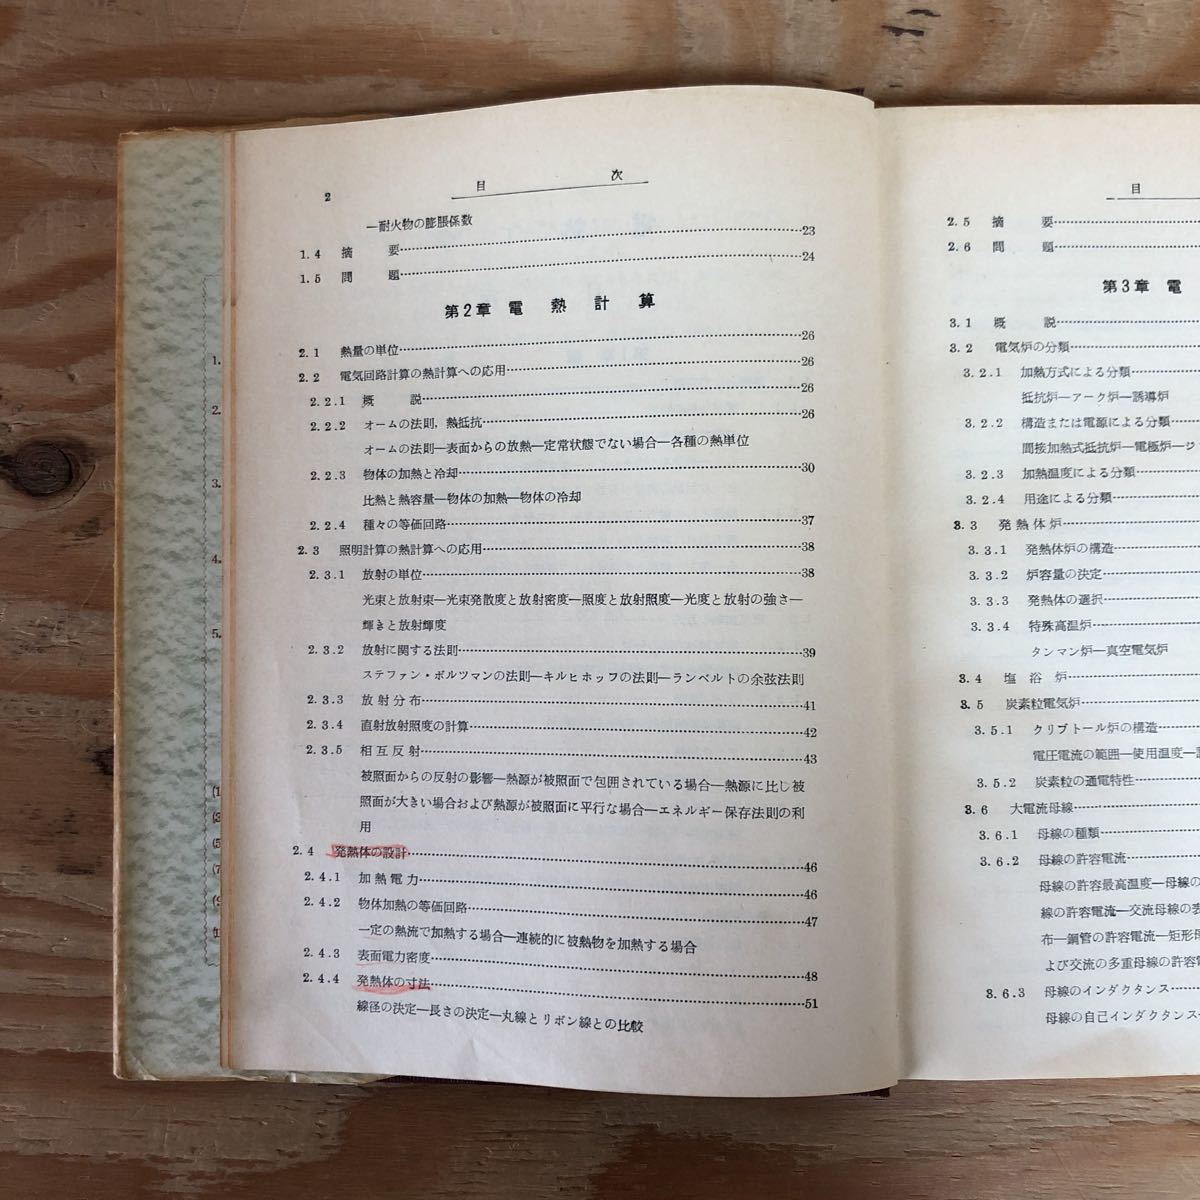 2 目 次
―耐火物の膨脹係数
1.4 摘 要……23
1.5 問 題……24
第2章 電 熱 計 算
2.1 熱量の単位……26
2.2 電気回路計算の熱計算への応用……26
2.2.1 概 説……26
2.2.2 オームの法則,熱抵抗……26
オームの法則―表面からの放熱―定常状態でない場合―各種の熱単位
2.2.3 物体の加熱と冷却……30
比熱と熱容量―物体の加熱―物体の冷却
2.2.4 種々の等価回路……37
2.3 照明計算の熱計算への応用……38
2.3.1 放射の単位……38
光束と放射束―光束発散度と放射密度―照度と放射照度―光度と放射の強さ―
輝きと放射輝度
2.3.2 放射に関する法則……39
ステファン・ボルツマンの法則―キルヒホッフの法則―ランベルトの余弦法則
2.3.3 放射分布……41
2.3.4 直射放射照度の計算……42
2.3.5 相互反射……43
被照面からの反射の影響―熱源が被照面で包囲されている場合―熱源に比し被
照面が大きい場合および熱源が被照面に平行な場合―エネルギー保存法則の利
用
2.4 発熱体の設計……46
2.4.1 加熱電力……46
2.4.2 物体加熱の等価回路……47
一定の熱流で加熱する場合―連続的に被熱物を加熱する場合
2.4.3 表面電力密度……48
2.4.4 発熱体の寸法……51
線径の決定―長さの決定―丸線とリボン線との比較
目
2.5 摘 要……
2.6 問 題……
第3章 電
3.1 概 説……
3.2 電気炉の分類……
3.2.1 加熱方式による分類……
抵抗炉―アーク炉―誘導炉
3.2.2 構造または電源による分類……
間接加熱式抵抗炉―電極炉―ジ
3.2.3 加熱温度による分類……
3.2.4 用途による分類……
3.3 発熱体炉……
3.3.1 発熱体炉の構造……
3.3.2 炉容量の決定……
3.3.3 発熱体の選択……
3.3.4 特殊高温炉……
タンマン炉―真空電気炉
3.4 塩浴炉……
3.5 炭素粒電気炉……
3.5.1 クリプトール炉の構造……
電圧電流の範囲―使用温度―
3.5.2 炭素粒の通電特性……
3.6 大電流母線……
3.6.1 母線の種類……
3.6.2 母線の許容電流……
母線の許容最高温度―母線の
線の許容電流―交流母線の表
布―鋼管の許容電流―矩形母
よび交流の多重母線の許容電
3.6.3 母線のインダクタンス……
母線の自己インダクタンス―
1.
2.
3.
4.
5.